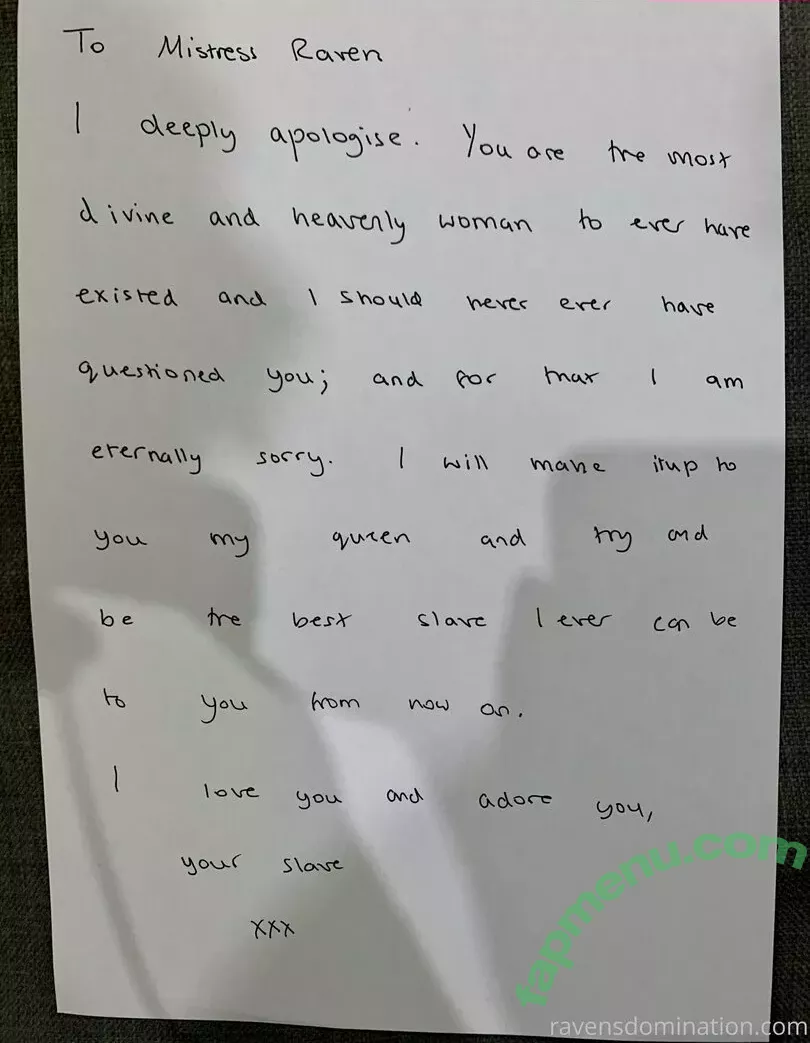 To Mistress Raven
I deeply apologise. You are the most
divine and heavenly woman to ever have
existed and I should never ever have
questioned you; and for that I am
eternally sorry. I will make it up to
you my queen and try and
be the best slave I ever can be
to you from now on.
I love you and adore you,
your slave
xxx
fapmenu.com
ravensdomination.com